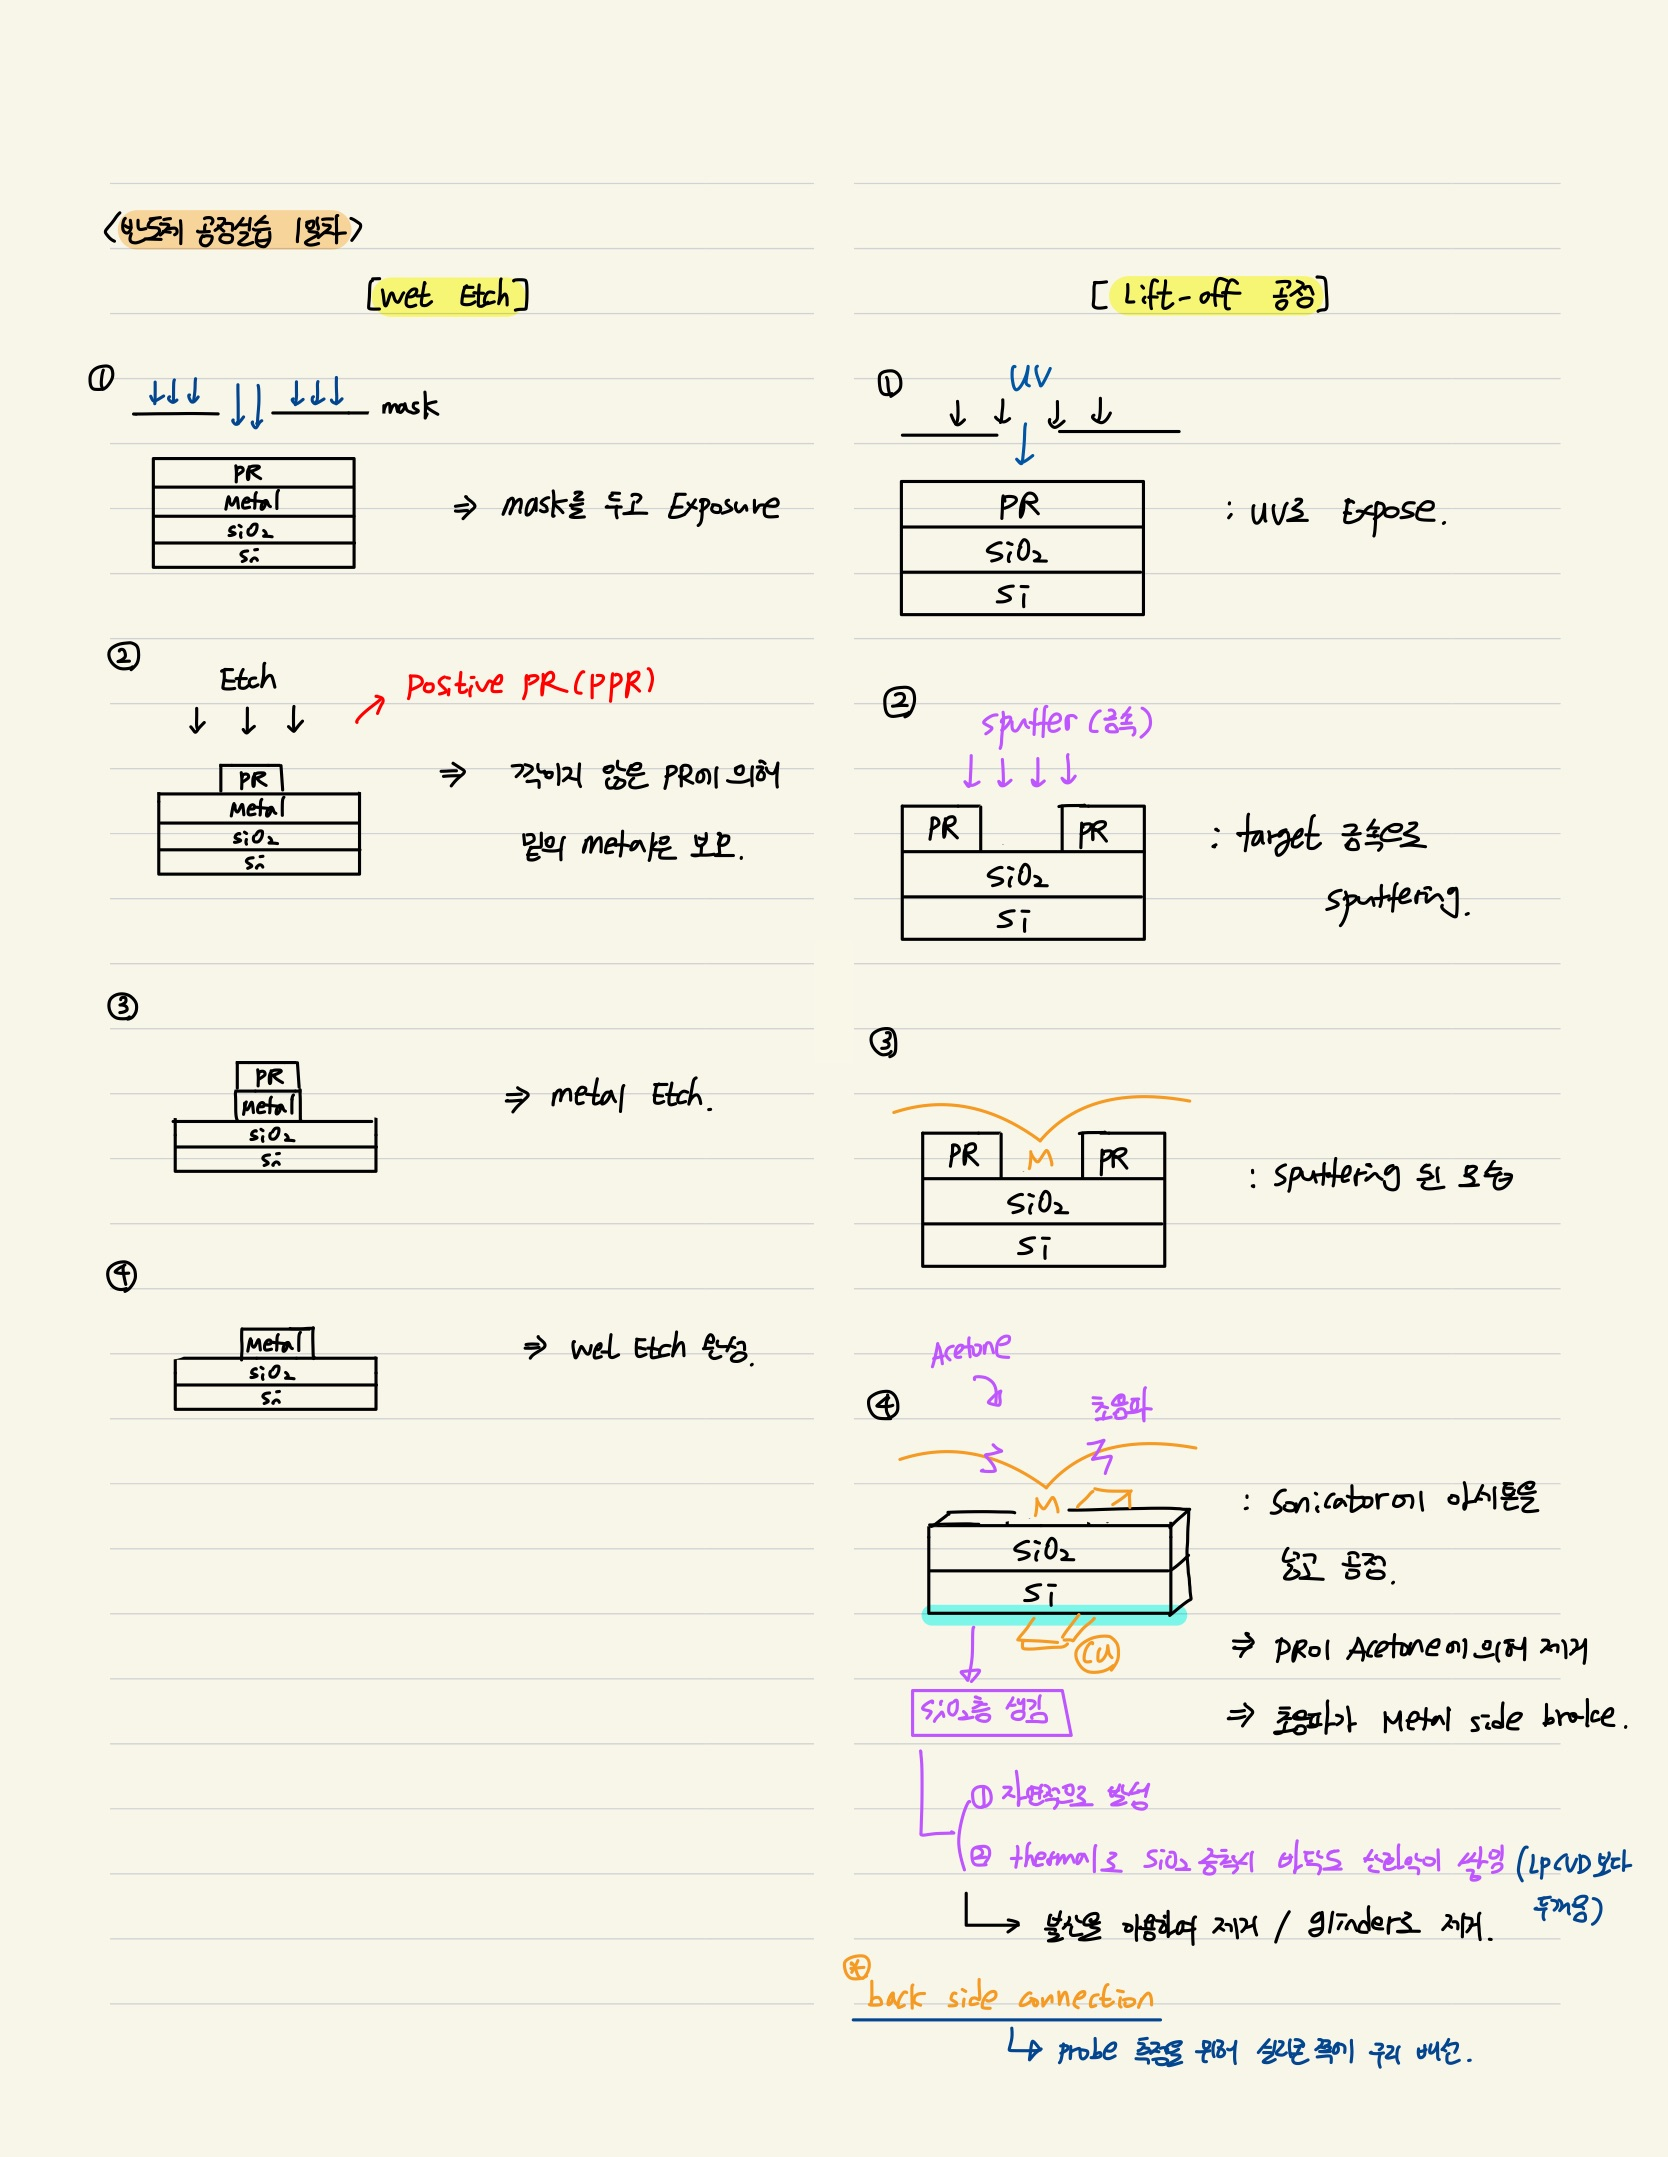 <반도체 공정실습 1일차>
[Wet Etch]
①
mask
PR
Metal
SiO₂
Si
⇒ mask를 두고 Exposure
②
Etch
Positive PR(PPR)
PR
Metal
SiO₂
Si
⇒ 깍이지 않은 PR에 의해
밑의 metal은 보호.
③
PR
Metal
SiO₂
Si
⇒ metal Etch.
④
Metal
SiO₂
Si
⇒ wet Etch 완성.
[Lift-off 공정]
①
UV
PR
SiO₂
Si
: UV로 Expose.
②
sputter (금속)
PR PR
SiO₂
Si
: target 금속으로
sputtering.
③
PR M PR
SiO₂
Si
: sputtering 된 모습
Acetone
④
초음파
M
SiO₂
Si
Cu
: Sonicator에 아세톤을
넣고 공정.
⇒ PR이 Acetone에 의해 제거
⇒ 초음파가 Metal side broke.
SiO₂층 생김
① 자연적으로 발생
② thermal로 SiO₂ 증착시 바닥도 산화막이 쌓임 (LPCVD보다
두꺼움)
불산을 이용하여 제거 / glinder로 제거.
* back side connection
probe 측정을 위해 실리콘 쪽에 구리 배선.